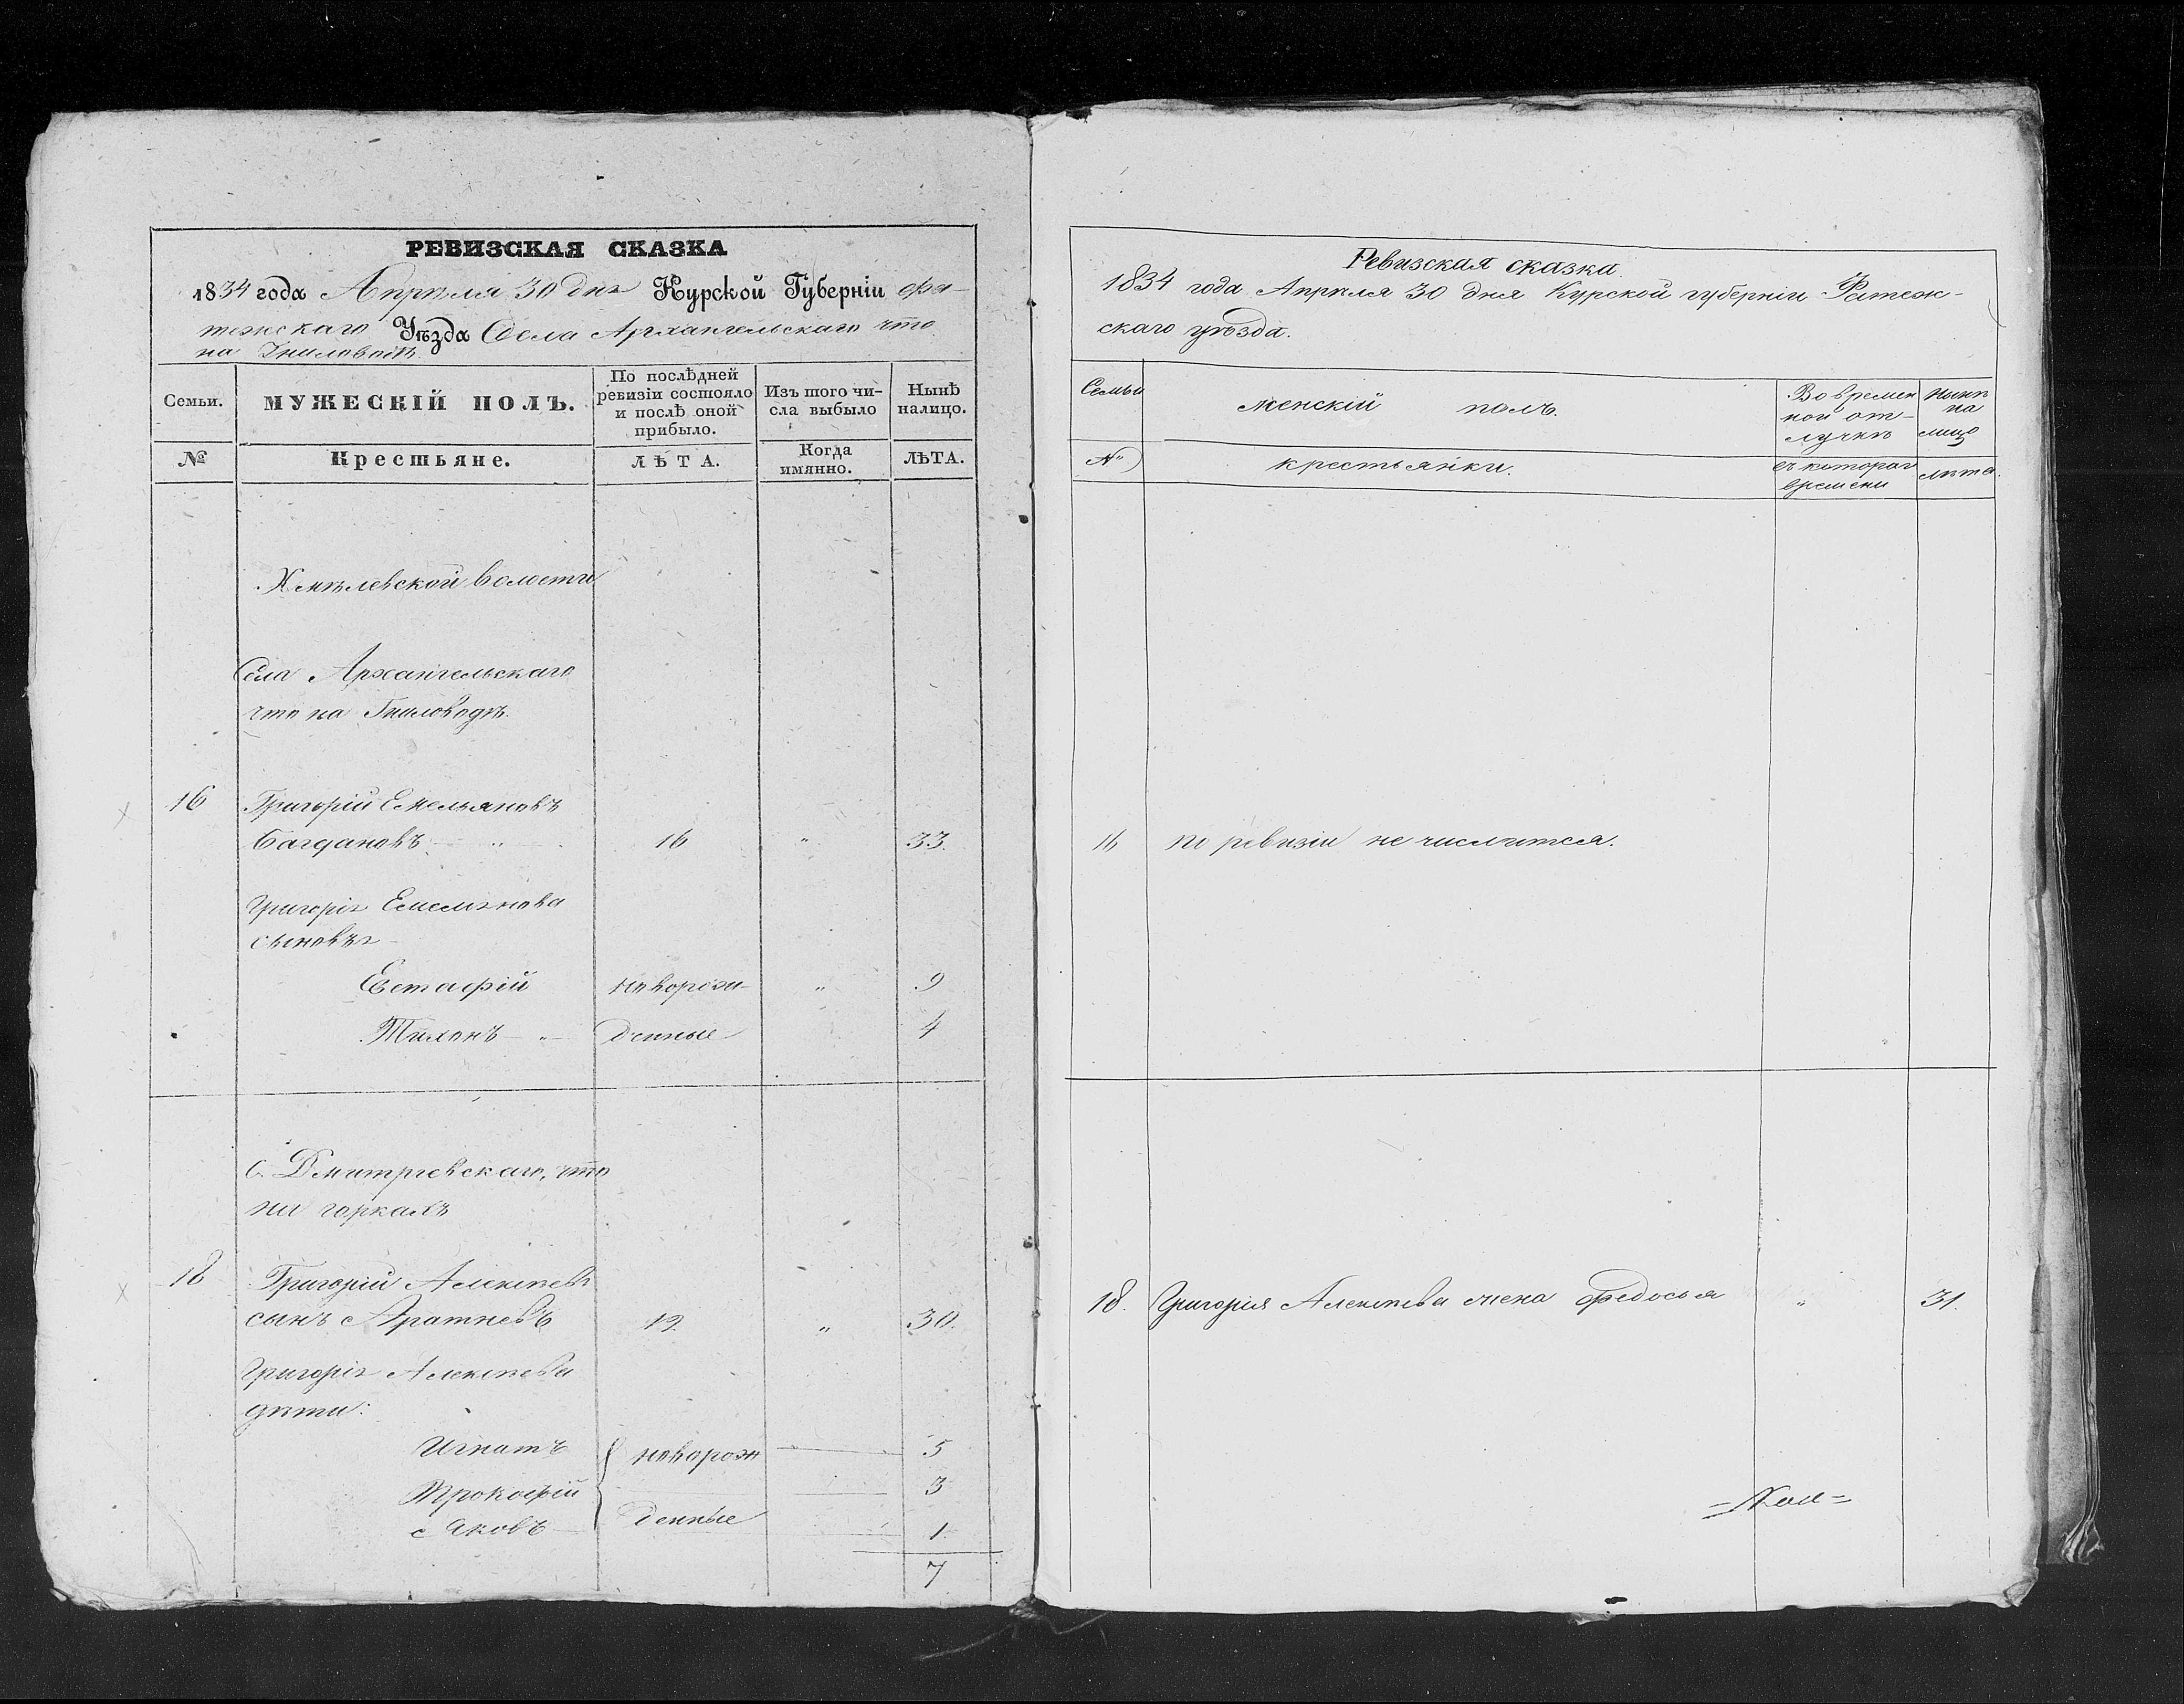 РЕВИЗСКАЯ СКАЗКА
1834 года Апрѣля 30 дня Курской Губерніи Фа-
тежскаго Уѣзда Села Архангельскаго что
на Гниловодѣ
Семьи. МУЖЕСКІЙ ПОЛЪ. По послѣдней ревизіи состояло и послѣ оной прибыло. Изъ того числа выбыло Нынѣ налицо.
№ Крестьяне. ЛѢТА. Когда имянно. ЛѢТА.
Хмѣлевской волости
Села Архангельскаго
что на Гниловодѣ.
16 Григорій Емельяновъ
Багдановъ - " - 16 " 33.
Григорія Емельянова
сыновья
Евстафій новорож- " 9
Тихонъ - " - денные 4
с. Дмитріевскаго, что
на горкахъ
18 Григорій Алексѣевъ
сынъ 19. " 30.
Григорія Алексѣева
дѣти:
Игнатъ новорож 5
Прокофій 3
Яковъ денные 1
7
Ревизская сказка.
1834 года Апрѣля 30 дня Курской губерніи Фатеж-
скаго уѣзда.
Семьи женскій полъ. Во времен ной от- лучкѣ Нынѣ на лицо
№ крестьянки. съ котораг времени лѣта.
16 по ревизіи не числится.
18. Григорія Алексѣева жена Федосья " 31.